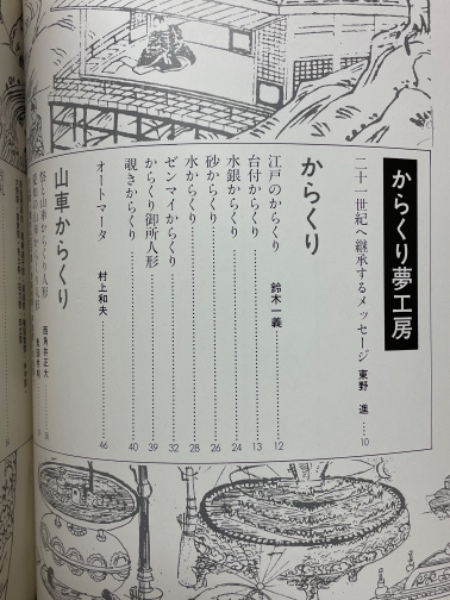 からくり夢工房
二十一世紀へ継承するメッセージ 東野 進 ……10
からくり
江戸のからくり 鈴木一義 ……12
台付からくり ……13
水銀からくり ……24
砂からくり ……26
水からくり ……28
ゼンマイからくり ……32
からくり御所人形 ……39
覗きからくり ……40
オートマータ 村上和夫 ……46
山車からくり
祭と山車からくり人形 西角井正大